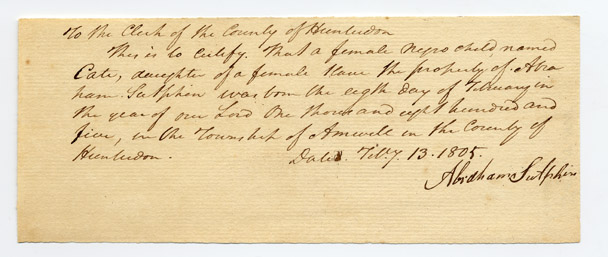 To the Clerk of the County of Hunterdon
This is to Certify. That a female Negro child named
Cate, daughter of a female Slave the property of Abra
ham Sutphin was born the eigth day of February in
the year of our Lord One thousand eight hundred and
five, in the Township of Amwell in the County of
Hunterdon. Dated Feb.y 13. 1805.
Abraham Sutphin